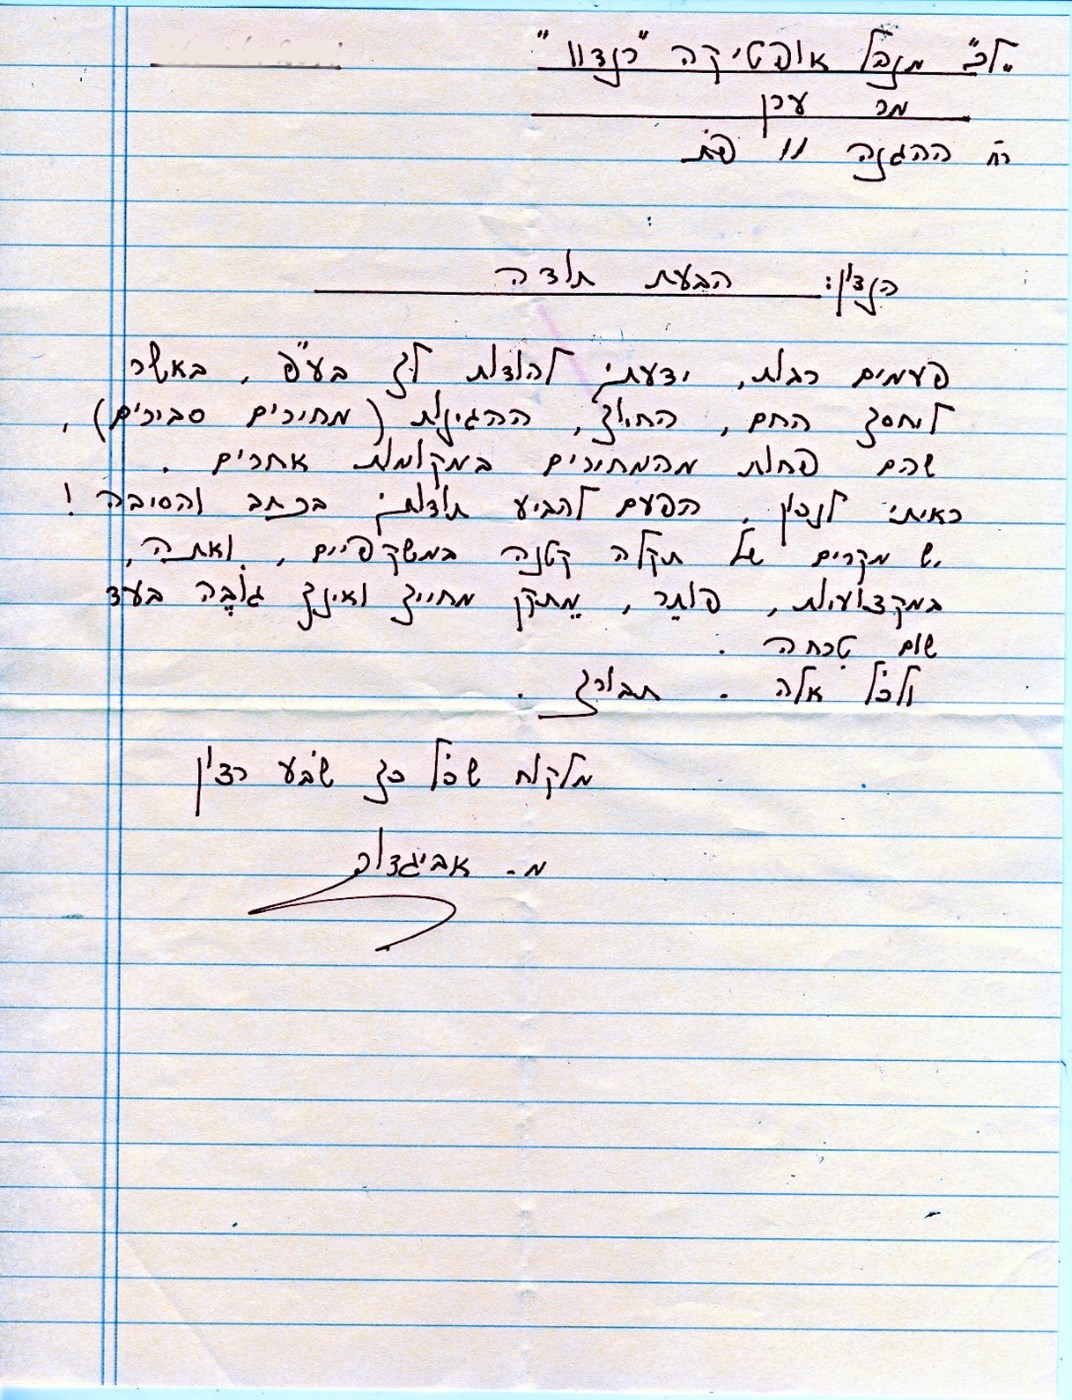 לכ' מנהל אופטיקה "רנדוו"
מר ערן
רח' ההגנה 11 פ"ת
הנדון: הבעת תודה
פעמים רבות, ידעתי להודות לך בע"פ, באשר
ליחסך החם, החויך, ההגינות (מחירים סבירים),
שהם פחות מהמחירים במקומות אחרים.
ראיתי לנכון, הפעם להביע תודתי בכתב והסיבה!
יש מקרים של תקלה קטנה במשקפיים, ואתה,
במקצועיות, פותֵר, מֵתקן מחייך ואינך גובֶה בעד
שום טִרחה.
ולכל אלה - תבורך.
מלקוח שכל כך שבע רצון
מ. אביגדור